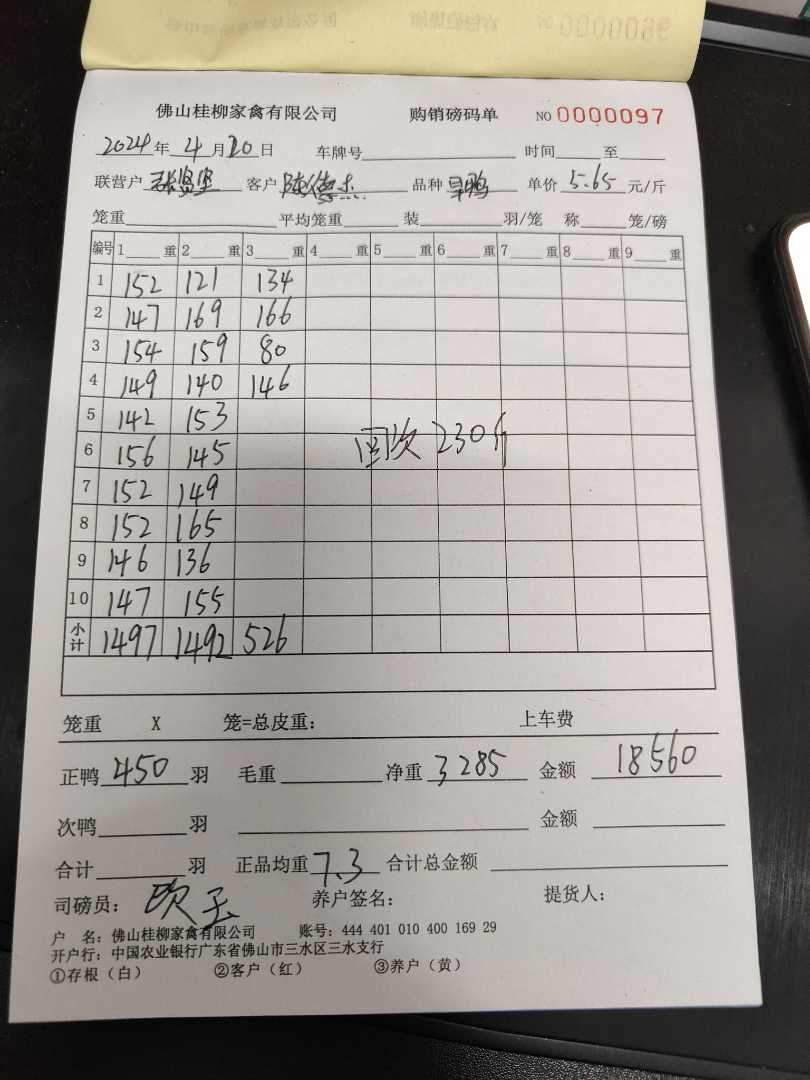 佛山桂柳家禽有限公司 购销磅码单 NO 0000097
2024年 4月20日 车牌号 时间 至
联营户 客户 品种 旱鸭 单价 5.65 元/斤
笼重 平均笼重 装 羽/笼 称 笼/磅
编号 1 重 2 重 3 重 4 重 5 重 6 重 7 重 8 重 9 重
1 152 121 134
2 147 169 166
3 154 159 80
4 149 140 146
5 142 153
6 156 145
7 152 149
8 152 165
9 146 136
10 147 155
次 230斤
小计 1497 1492 526
笼重 X 笼=总皮重: 上车费
正鸭 450 羽 毛重 净重 3285 金额 18560
次鸭 羽 金额
合计 羽 正品均重 7.3 合计总金额
司磅员: 养户签名: 提货人:
户 名: 佛山桂柳家禽有限公司 账号: 444 401 010 400 169 29
开户行: 中国农业银行广东省佛山市三水区三水支行
①存根(白) ②客户(红) ③养户(黄)